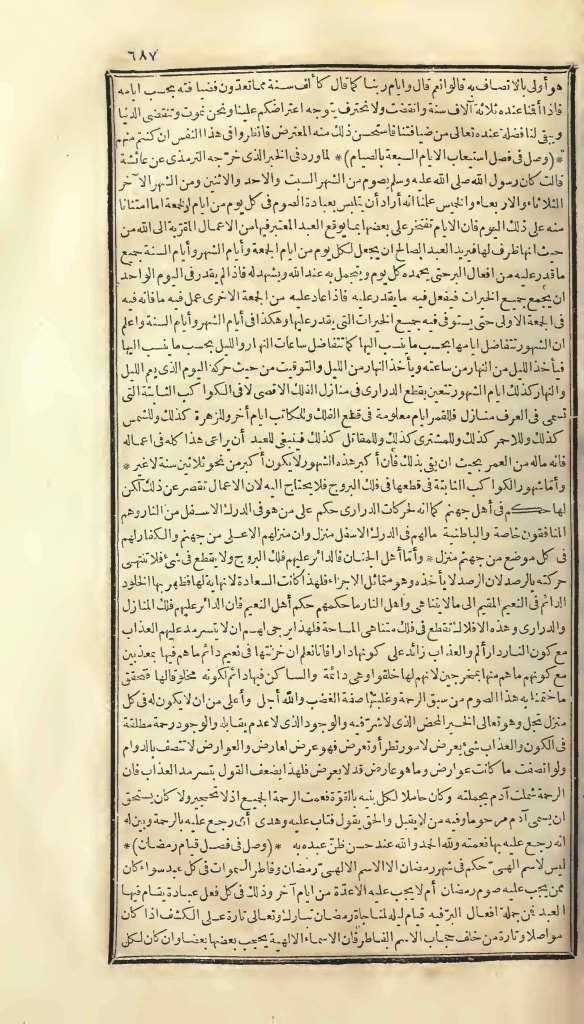 ٦٨٧
هو أولى بالاتصاف به قالوا نعم قال وأيام ربنا كما قال كألف سنة مما تعدون فضيافته بحسب أيامه
فاذا أقنا عنده ثلاثة آلاف سنة وانقضت ولا نحترف يتوجه اعتراضكم علينا ونحن نموت وتنقضى الدنيا
ويبقى لنا فضلة عنده تعالى من ضيافتنا فاستحسن ذلك منه المعترض فانظروا فى هذا النفس ان كنتم منهم
* (وصل فى فصل استيعاب الايام السبعة بالصيام) * لما ورد فى الخبر الذى خرّجه الترمذى عن عائشة
قالت كان رسول الله صلى الله عليه وسلم يصوم من الشهر السبت والاحد والاثنين ومن الشهر الآخر
الثلاثاء والاربعاء والخميس علمنا انه أراد أن يتلبس بعبادة الصوم فى كل يوم من ايام الجمعة اما امتنانا
منه على ذلك اليوم فان الايام تفتخر على بعضها بما يوقع العبد المعتبر فيها من الاعمال المقربة الى الله من
حيث انها ظرف لها فيريد العبد الصالح ان يجعل لكل يوم من ايام الجمعة وأيام الشهر وأيام السنة جميع
ما قدر عليه من افعال البر حتى يحمده كل يوم ويتجمل به عند الله ويشهد له فاذا لم يقدر فى اليوم الواحد
ان يجمع جميع الخيرات فيفعل فيه ما يقدر عليه فاذا عاد عليه من الجمعة الاخرى عمل فيه ما فاته فيه
فى الجمعة الاولى حتى يستوفى فيه جميع الخيرات التى يقدر عليها وهكذا فى أيام الشهر وأيام السنة واعلم
ان الشهور تتفاضل ايامها بحسب ما ينسب اليها كما تتفاضل ساعات النهار والليل بحسب ما ينسب اليها
فيأخذ الليل من النهار من ساعته ويأخذ النهار من الليل والتوقيت من حيث حركة اليوم الذى يعم الليل
والنهار كذلك ايام الشهور تتعين بقطع الدرارى فى منازل الفلك الاقصى لا فى الكواكب الثابتة التى
تسمى فى العرف منازل فللقمر ايام معلومة فى قطع الفلك وللكاتب ايام أخر وللزهرة كذلك وللشمس
كذلك وللاحمر كذلك وللمشترى كذلك وللمقاتل كذلك فينبغى للعبد أن يراعى هذا كله فى اعماله
فانه ماله من العمر بحيث ان يفى بذلك فان أكبر هذه الشهور لا يكون أكبر من نحو ثلاثين سنة لا غير *
وأما شهور الكواكب الثابتة فى قطعها فى فلك البروج فلا يحتاج اليه لان الاعمال تقصر عن ذلك لكن
لها حكم فى أهل جهنم كما انه لحركات الدرارى حكم على من هو فى الدرك الاسفل من النار وهم
المنافقون خاصة والباطنية مالهم فى الدرك الاسفل منزل وان منزلهم الاعلى من جهنم والكفار لهم
فى كل موضع من جهنم منزل * وأما أهل الجنان فالدائر عليهم فلك البروج ولا يقطع فى شئ فلا تنتهى
حركته بالرصد لان الرصد لا يأخذه وهو متماثل الاجزاء فلهذا كانت السعادة لا نهاية لها فظهر بها الخلود
الدائم فى النعيم المقيم الى ما لا يتناهى واهل النار ما حكمهم حكم أهل النعيم فان الدائر عليهم فلك المنازل
والدرارى وهذه الافلاك تقطع فى فلك متناهى المساحة فلهذا يرجى لهم ان لا يتسرمد عليهم العذاب
مع كون النار دار ألم والعذاب زائد على كونها دارا فانا نعلم ان خزنتها فى نعيم دائم ما هم فيها بمعذبين
مع كونهم ما هم منها بمخرجين لانهم لها خلقوا وهى دائمة والساكن فيها دائم لكونه مخلوقا لها فتحقق
ما ختمنا به هذا الصوم من سبق الرحمة وغلبتها صفة الغضب والله أجل وأعلى من ان لا يكون له فى كل
منزل تجل وهو تعالى الخير المحض الذى لا شر فيه والوجود الذى لا عدم يقابله والوجود رحمة مطلقة
فى الكون والعذاب شئ يعرض لامور تطرأ وتعرض فهو عرض لعارض والعوارض لا تتصف بالدوام
ولو اتصفت ما كانت عوارض وما هو عارض قد لا يعرض فلهذا يضعف القول بتسرمد العذاب فان
الرحمة شملت آدم بجملته وكان حاملا لكل بنيه بالقوة فعمت الرحمة الجميع اذ لا تحجير ولا كان يستحق
ان يسمى آدم مرحوما وفيه من لا يقبل والحق يقول فتاب عليه وهدى أى رجع عليه بالرحمة وبين له
انه رجع عليه بها فعمته ولله الحمد والله عند حسن ظنّ عبده به * (وصل فى فصل قيام رمضان) *
ليس لاسم الهى حكم فى شهر رمضان الا الاسم الالهى رمضان وفاطر السموات فى كل عبد سواء كان
ممن يجب عليه صوم رمضان أم لا يجب عليه الا عدّة من ايام آخر وذلك فى كل فعل عبادة يقام فيها
العبد فمن جملة افعال البر فيه قيام ليله لمناجاة رمضان تبارك وتعالى تارة على الكشف اذا كان
مواصلا وتارة من خلف حجاب الاسم الفاطر فان الاسماء الالهية يحجب بعضها بعضا وان كان لكل